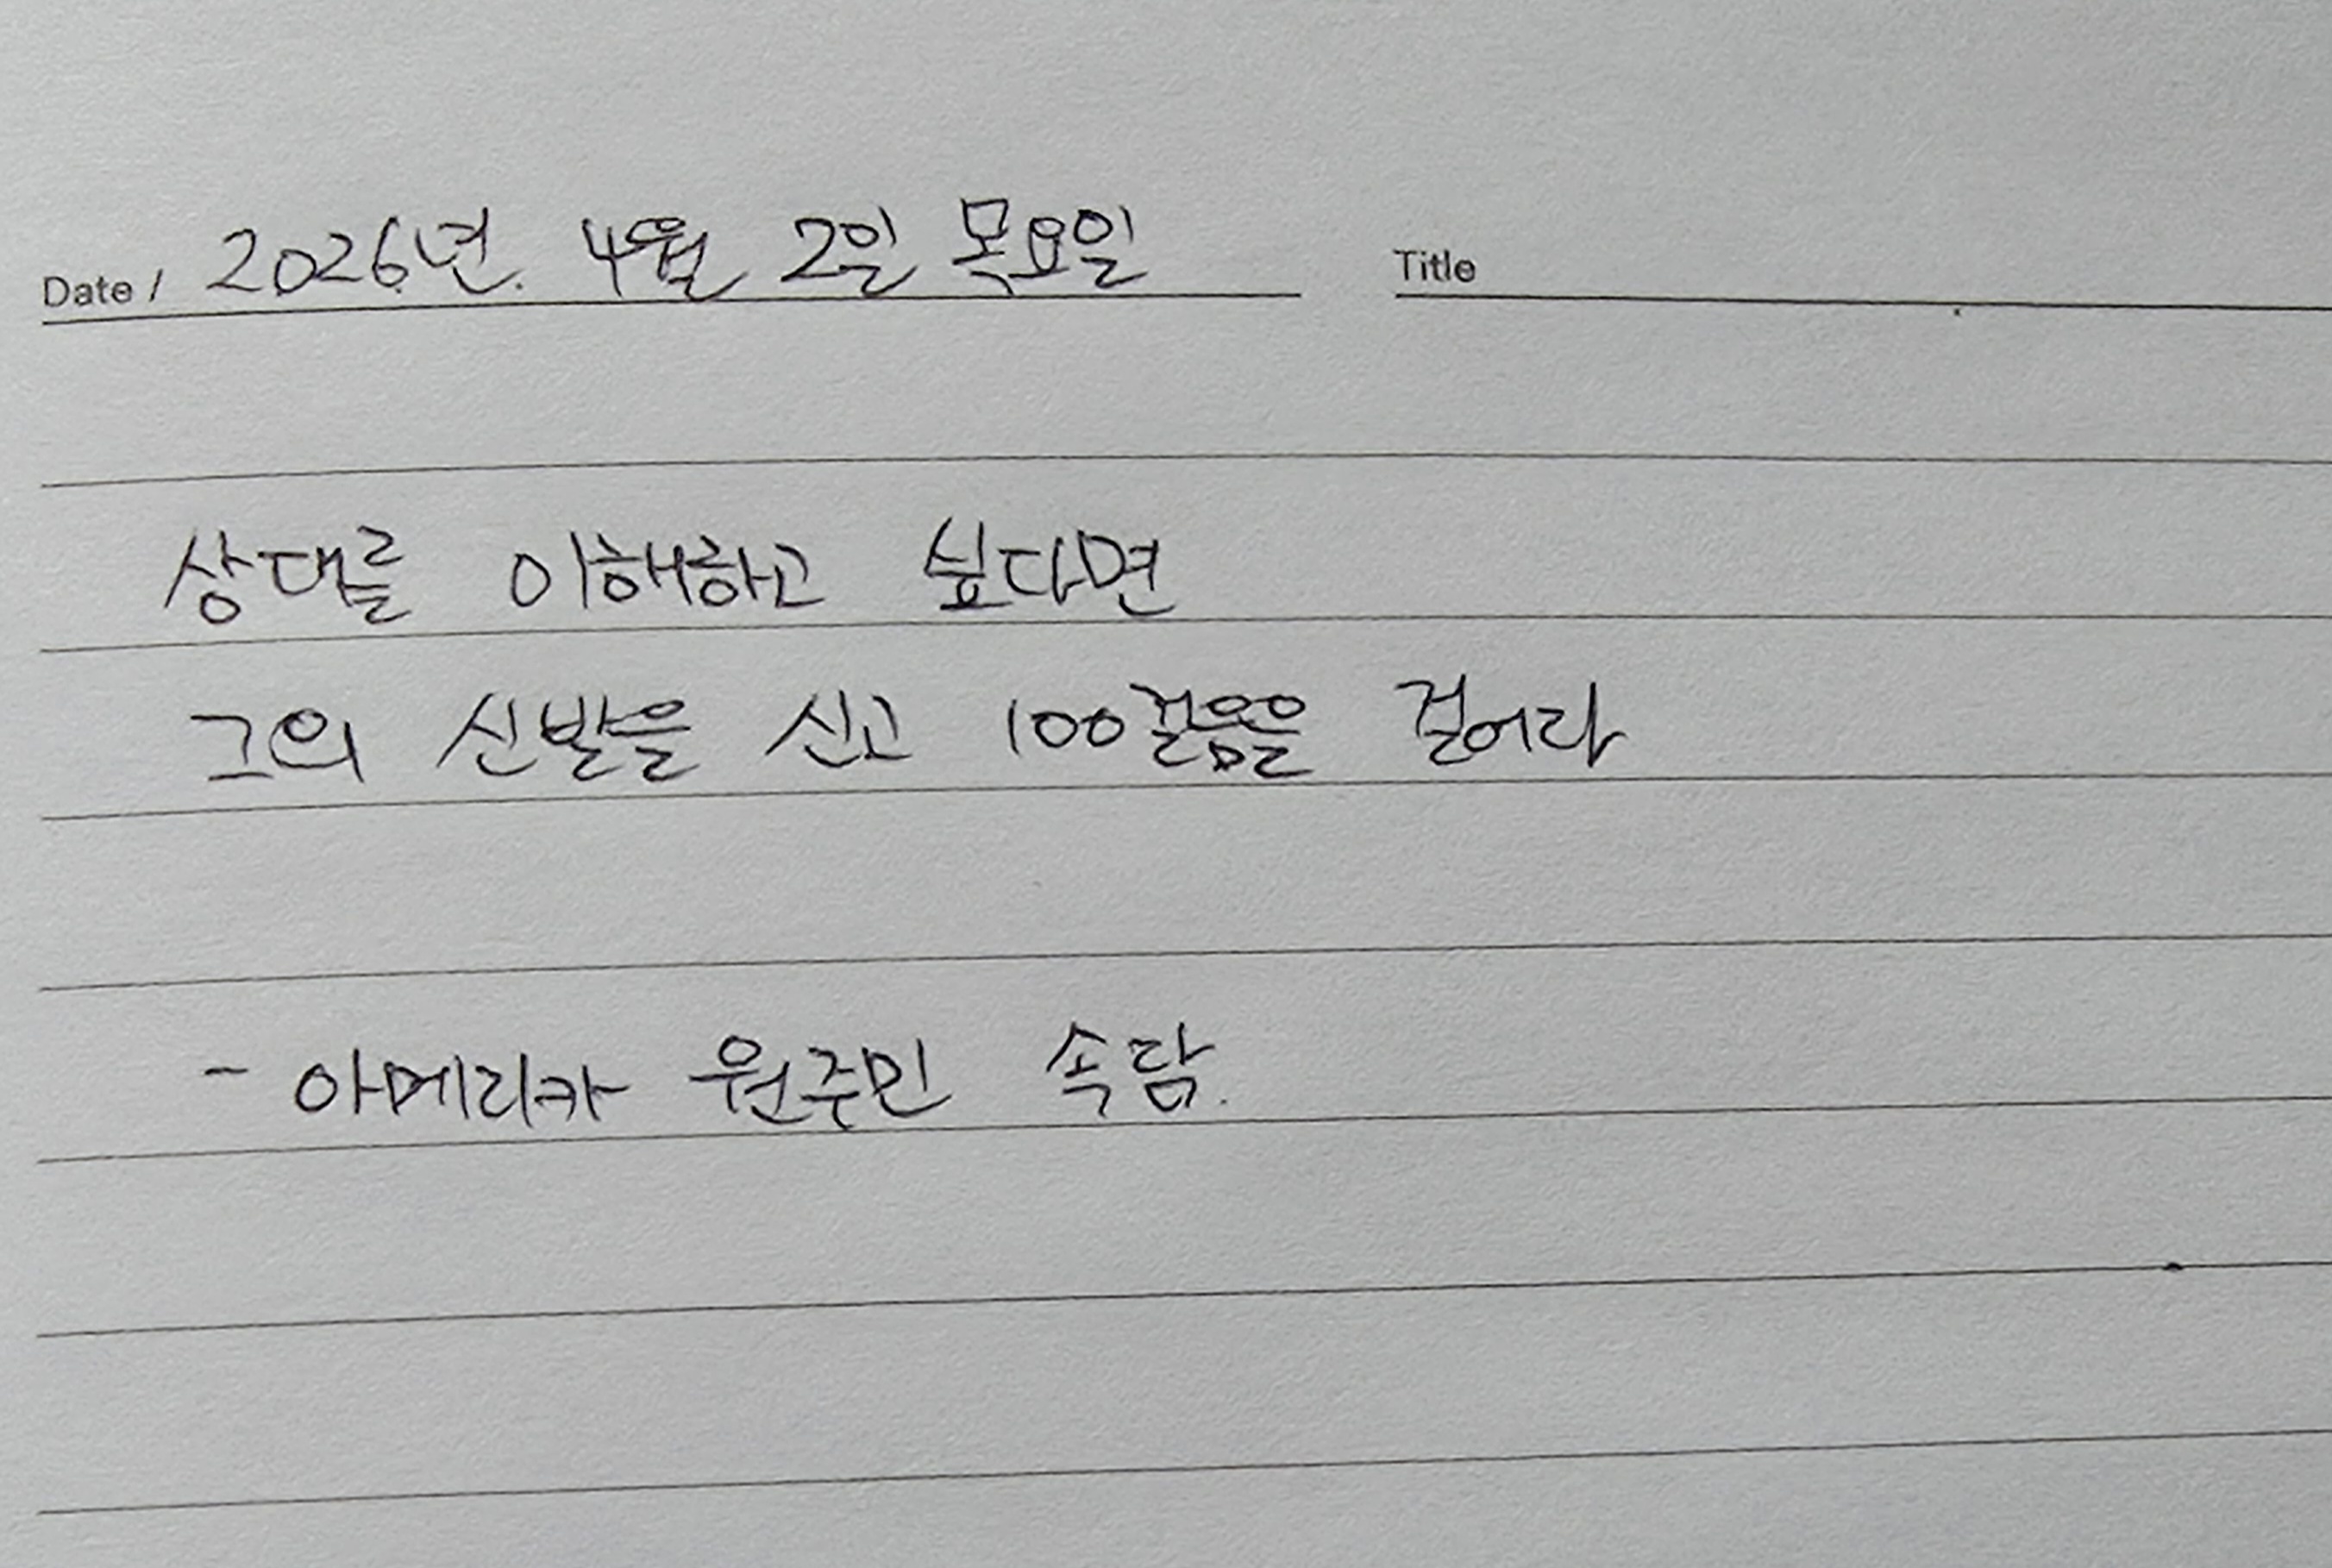 Date / 2026년. 4월 2일 목요일 Title
상대를 이해하고 싶다면
그의 신발을 신고 100걸음을 걸어라
- 아메리카 원주민 속담.